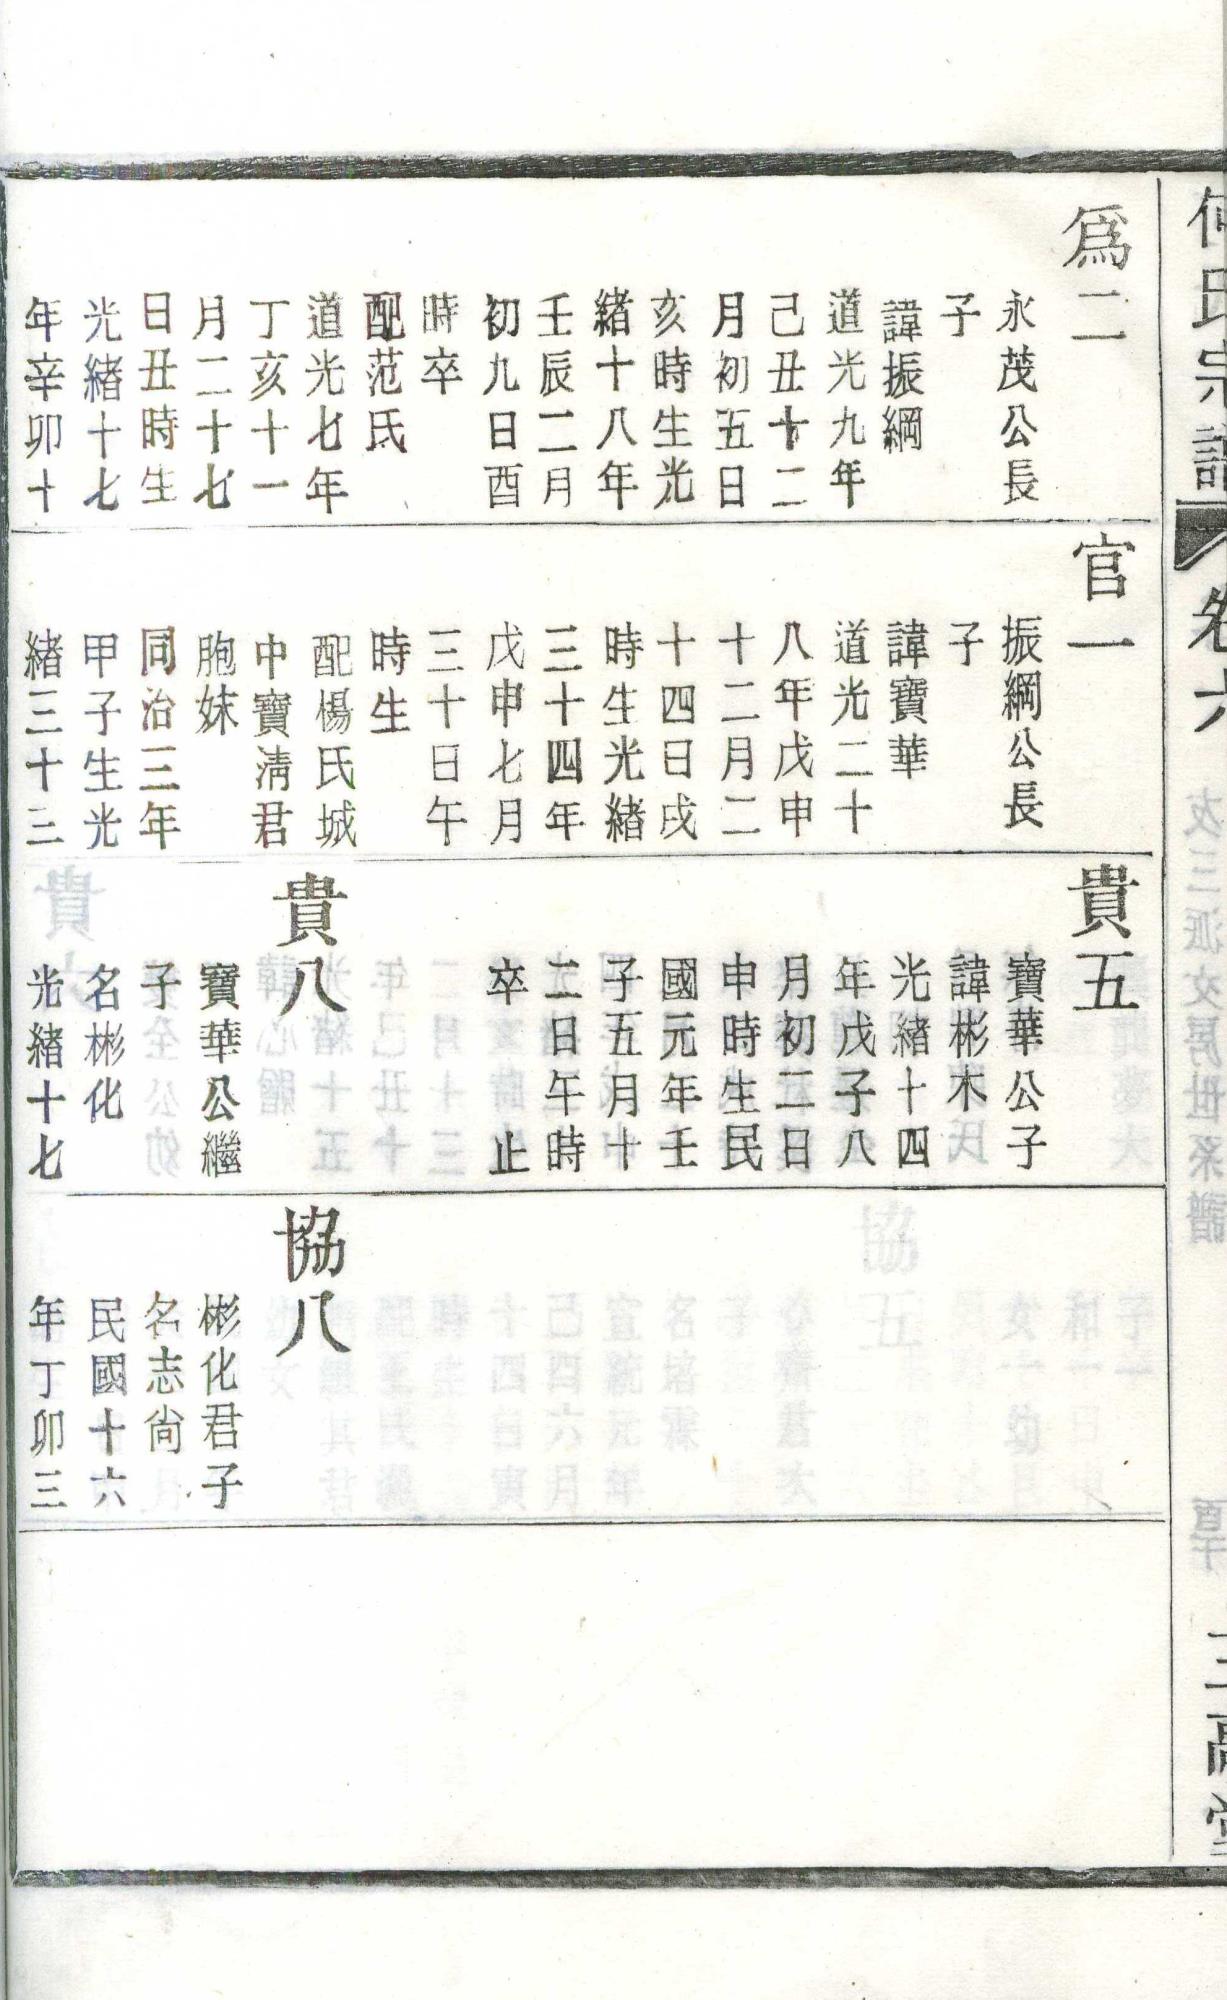 何氏宗譜
卷六
三高堂
爲二
永茂公長
子
諱振綱
道光九年
己丑十二
月初五日
亥時生光
緒十八年
壬辰二月
初九日酉
時卒
配范氏
道光七年
丁亥十一
月二十七
日丑時生
光緒十七
年辛卯十
官一
振綱公長
子
諱寶華
道光二十
八年戊申
十二月二
十四日戌
時生光緒
三十四年
戊申七月
三十日午
時生
配楊氏城
中寶淸君
胞妹
同治三年
甲子生光
緒三十三
貴五
寶華公子
諱彬木
光緒十四
年戊子八
月初二日
申時生民
國元年壬
子五月十
二日午時
卒止
貴八
寶華公繼
子
名彬化
光緒十七
協八
彬化君子
名志尙
民國十六
年丁卯三